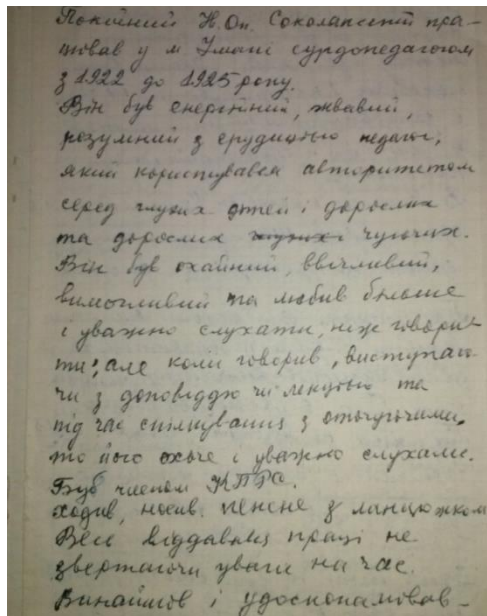 Покійний Н. Оп. Соколанский пра-
цював у м Умані сурдопедагогом
з 1922 до 1925 року.
Він був енергійний, жвавий,
розумний з ерудицією педагог,
який користувався авторитетом
серед глухих дітей і дорослих
та дорослих чуючих.
Він був охайний, ввічливий,
вимогливий та любив більше
і уважно слухати, ніж говори-
ти; але коли говорив, виступаю-
чи з доповіддю чи лекцією та
під час спілкування з оточуючими,
то його охоче і уважно слухали.
Був членом КПРС.
Ходив, носив пенсне з ланцюжком
Весь віддавався праці не
звертаючи уваги на час.
Винайшов і удосконалював-